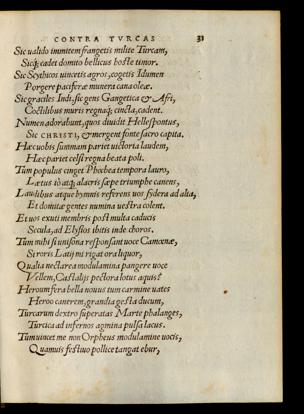 CONTRA TVRCAS 31
Sic ualido immitem frangetis milite Turcam,
Sicq; cadet domito bellicus hoste timor.
Sic Scythicos uincetis agros, cogetis Idumen
Porgere paciferæ munera cana oleæ.
Sic graciles Indi, sic gens Gangetica & Afri,
Coctilibus muris regnaq; cincta, cadent.
Numen adorabunt, quos diuidit Hellespontus,
Sic CHRISTI, & mergent fonte sacro capita.
Hæc uobis summam pariet uictoria laudem,
Hæc pariet celsi regna beata poli.
Tum populus cinget Phœbea tempora lauro,
Lætus iò atq; alacris sæpe triumphe canens,
Laudibus atque hymnis referens uos sidera ad alta,
Et domitæ gentes numina uestra colent.
Et uos exuti membris post multa caducis
Secula, ad Elysios ibitis inde choros.
Tum mihi si unisona responsant uoce Camœnæ,
Si roris Latij mi rigat ora liquor,
Qualia nectarea modulamina pangere uoce
Vellem, Castalijs pectora lotus aquis?
Heroum fera bella unus tum carmine uates
Heroo canerem, grandia gesta ducum,
Turcarum dextro superatas Marte phalanges,
Turcica ad infernos agmina pulsa lacus.
Tum uincet me non Orpheus modulamine uocis,
Quamuis festiuo pollice tangat ebur,